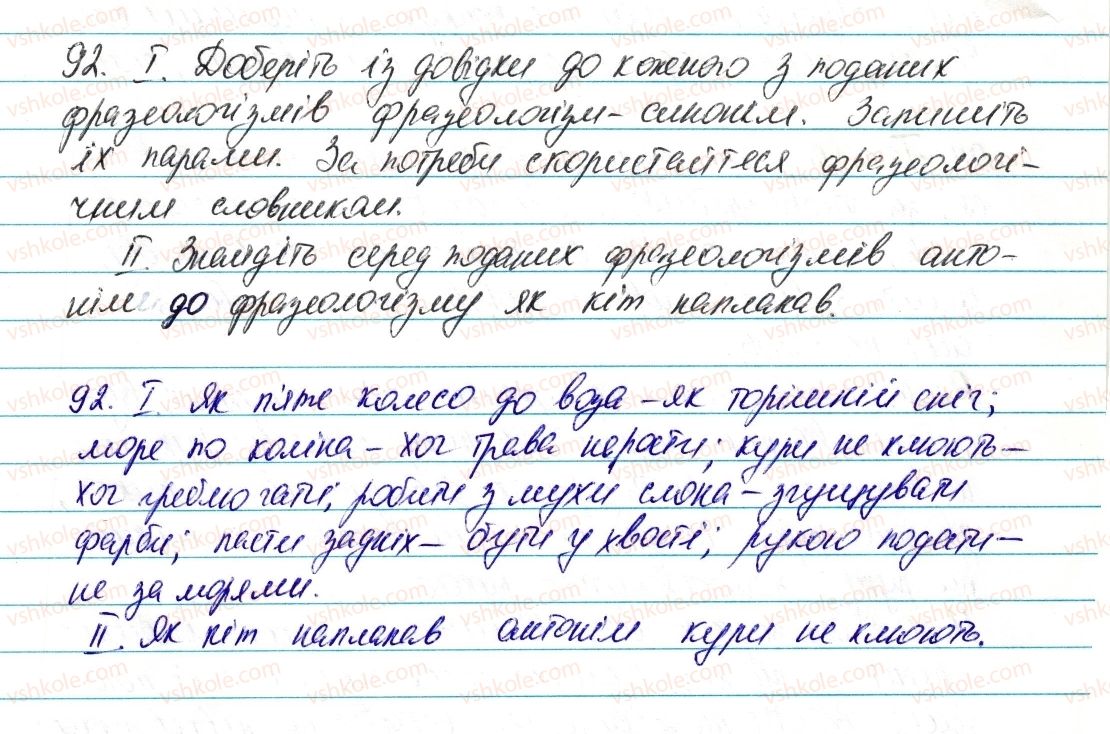 92. І. Доберіть із довідки до кожного з поданих
фразеологізмів фразеологізм-синонім. Запишіть
їх парами. За потреби скористайтеся фразеологі-
чним словником.
ІІ. Знайдіть серед поданих фразеологізмів анто-
нім до фразеологізму як кіт наплакав.
92. І. Як п'яте колесо до воза – як торішній сніг;
море по коліна – хоч трава не рости; кури не клюють –
хоч греблю гати; робити з мухи слона – згущувати
фарби; пасти задніх – бути у хвості; рукою подати –
не за морями.
ІІ. Як кіт наплакав антонім кури не клюють.